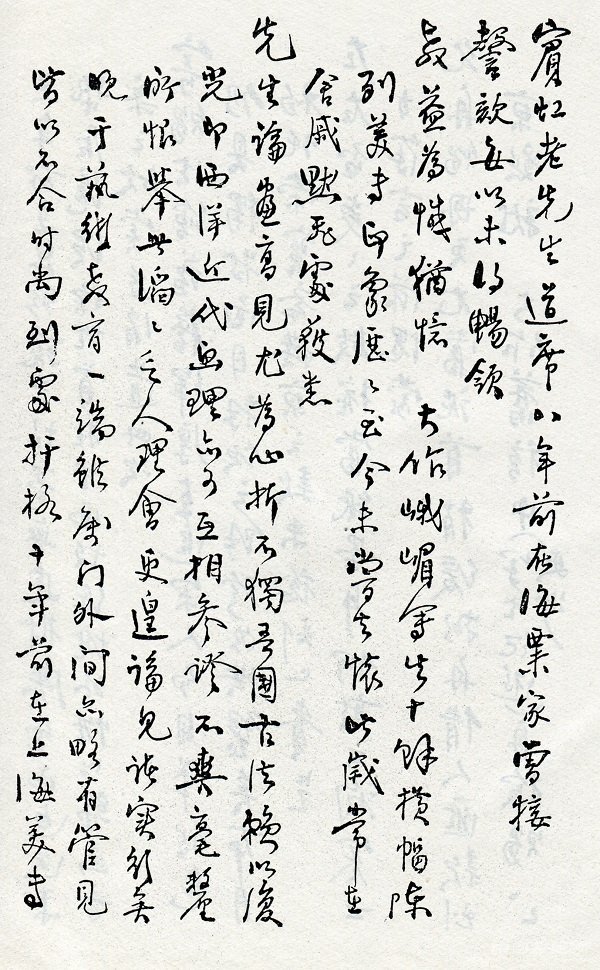 賓虹老先生道席八年前在海粟家曾接
謦欬每以未得暢領
教益為憾猶憶 大作峨嵋寫生十餘橫幅陳
列美專印象歷々至今未嘗去懷比歲常在
舍戚默飛處獲悉
先生論畫高見尤為心折不獨吾國古法賴以復
光即西洋近代畫理亦可互相參證不爽毫釐
所恨舉世滔々乏人理會更遑論見諸實行矣
晚于藝術教育一端雖屬門外間亦略有管見
皆以不合時尚到處扞格十年前在上海美專